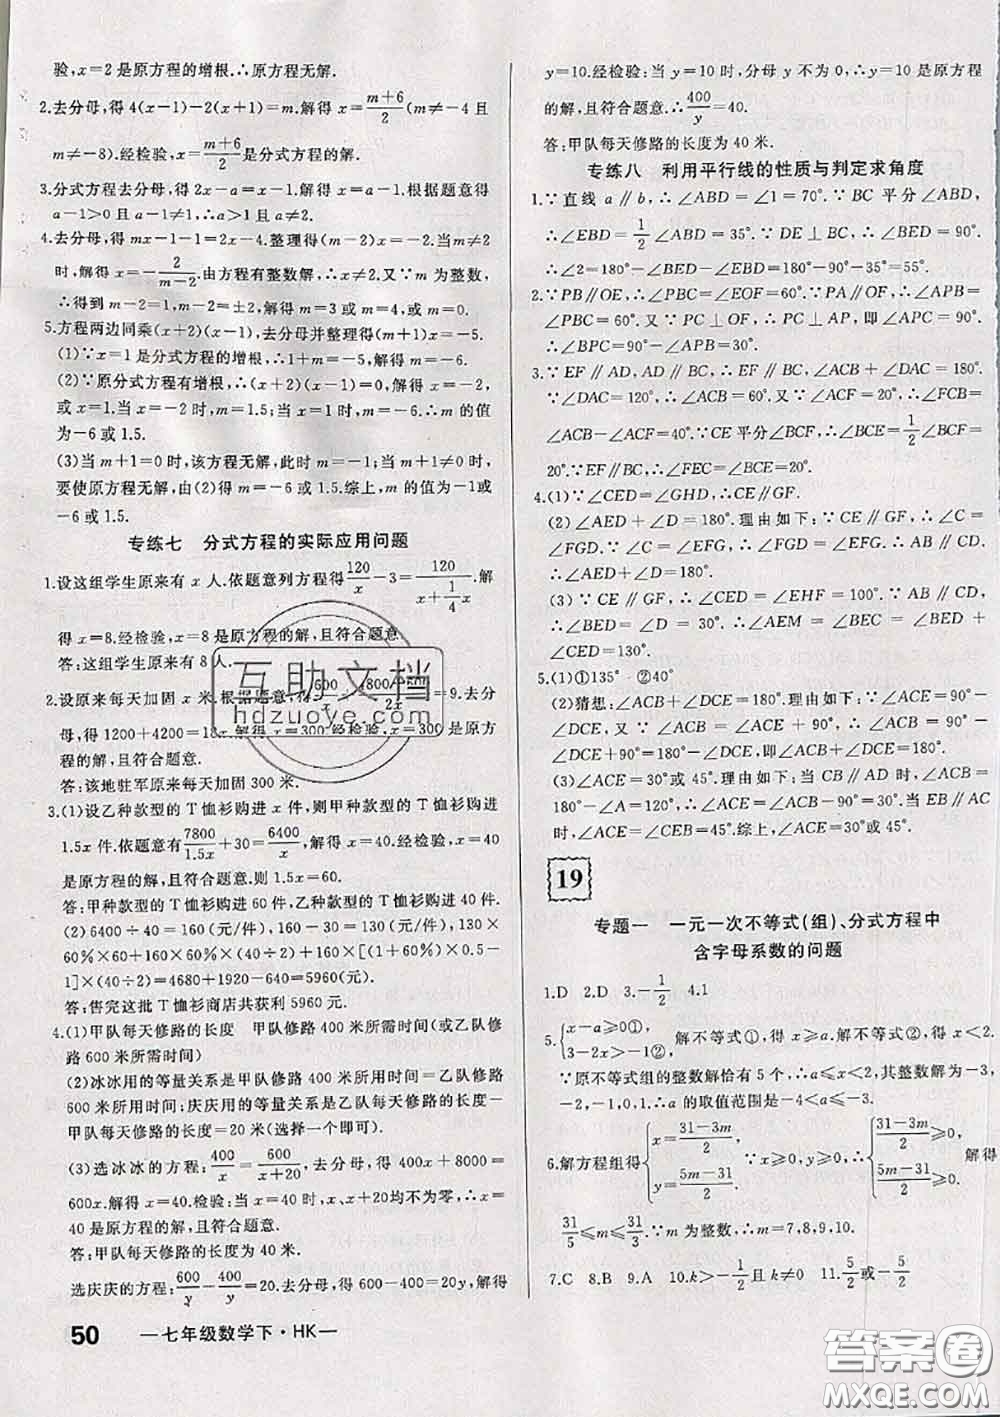 验,x=2是原方程的增根.∴原方程无解.
2.去分母,得 4(x-1)-2(x+1)=m.解得 x=(m+6)/2(m≠-4 且
m≠-8).经检验,x=(m+6)/2是分式方程的解.
3.分式方程去分母,得 2x-a=x-1.解得 x=a-1.根据题意得
a-1>0且 a-1≠1,∴a>1且a≠2.
4.去分母,得 mx-1-1=2x-4.整理得(m-2)x=-2.当m≠2
时,解得 x=-2/(m-2).由方程有整数解,∴x≠2.又∵m 为整数,
∴得到 m-2=-1,m-2=±2,解得 m=3 或 m=4,或 m=0.
5.方程两边同乘(x+2)(x-1),去分母并整理得(m+1)x=-5.
(1)∵x=1是分式方程的增根,∴1+m=-5,解得 m=-6.
(2)∵原分式方程有增根,∴(x+2)(x-1)=0,解得 x=-2,
或 x=1,当 x=-2 时,m=1.5;当 x=1 时,m=-6.∴m 的值
为-6 或 1.5.
(3)当 m+1=0 时,该方程无解,此时 m=-1;当 m+1≠0 时,
要使原方程无解,由(2)得 m=-6 或 1.5.综上,m 的值为-1或
-6 或 1.5.
专练七 分式方程的实际应用问题
1.设这组学生原来有 x 人.依题意列方程得120/x-3=120/(x+1/4x).解
得 x=8.经检验,x=8 是原方程的解,且符合题意.
答:这组学生原来有 8 人.
互助文档
hdzuoye.com
2.设原来每天加固 x 米.根据题意,得600/x+(4800-600)/2x=9.去分
母,得 1200+4200=18x.解得 x=300.经检验,x=300 是原方
程的解,且符合题意.
答:该地驻军原来每天加固 300 米.
3.(1)设乙种款型的 T 恤衫购进 x 件,则甲种款型的 T 恤衫购进
1.5x 件.依题意得7800/1.5x+30=6400/x,解得 x=40.经检验,x=40
是原方程的解,且符合题意.则 1.5x=60.
答:甲种款型的T恤衫购进 60件,乙种款型的T恤衫购进 40 件.
(2)6400÷40=160(元/件),160-30=130(元/件).130×
60%×60+160×60%×(40÷2)-160×[1-(1+60%)×0.5
-1]×(40÷2)=4680+1920-640=5960(元).
答:售完这批 T恤衫商店共获利 5960 元.
4.(1)甲队每天修路的长度 甲队修路 400 米所需时间(或乙队修
路 600 米所需时间)
(2)冰冰用的等量关系是甲队修路 400 米所用时间=乙队修路
600 米所用时间;庆庆用的等量关系是乙队每天修路的长度-
甲队每天修路的长度=20 米(选择一个即可).
(3)选冰冰的方程:400/x=600/(x+20),去分母,得 400x+8000=
600x.解得 x=40.检验:当 x=40 时,x、x+20均不为零,∴x=
40 是原方程的解,且符合题意.
答:甲队每天修路的长度为 40 米.
选庆庆的方程:600/y-400/y=20.去分母,得 600-400=20y,解得
50 —七年级数学下·HK—
y=10.经检验:当 y=10 时,分母 y 不为 0,∴y=10 是原方程
的解,且符合题意.∴400/y=40.
答:甲队每天修路的长度为 40 米.
专练八 利用平行线的性质与判定求角度
1.∵直线 a∥b,∴∠ABD=∠1=70°.∵BC 平分∠ABD,
∴∠EBD=1/2∠ABD=35°.∵DE⊥BC,∴∠BED=90°.
∴∠2=180°-∠BED-∠EBD=180°-90°-35°=55°.
2.∵PB∥OE,∴∠PBC=∠EOF=60°.∵PA∥OF,∴∠APB=
∠PBC=60°.又∵PC⊥OF,∴PC⊥AP,即∠APC=90°.
∴∠BPC=90°-∠APB=30°.
3.∵EF∥AD,AD∥BC,∴EF∥BC.∴∠ACB+∠DAC=180°.
∵∠DAC=120°,∴∠ACB=60°.又∵∠ACF=20°,∴∠FCB=
∠ACB-∠ACF=40°.∵CE平分∠BCF,∴∠BCE=1/2∠BCF=
20°.∵EF∥BC,∴∠FEC=∠BCE=20°.
4.(1)∵∠CED=∠GHD,∴CE∥GF.
(2)∠AED+∠D=180°.理由如下:∵CE∥GF,∴∠C=
∠FGD.∵∠C=∠EFG,∴∠FGD=∠EFG.∴AB∥CD,
∴∠AED+∠D=180°.
(3)∵CE∥GF,∴∠CED=∠EHF=100°.∵AB∥CD,
∴∠BED=∠D=30°,∴∠CEB=∠CED+∠BED=130°,
∴∠AEC=180°-∠CEB=50°.
5.(1)①135° ②40°
(2)猜想:∠ACB+∠DCE=180°.理由如下:∵∠ACE=90°-
∠DCE,又∵∠ACB=∠ACE+90°,∴∠ACB=90°-
∠DCE+90°=180°-∠DCE,即∠ACB+∠DCE=180°.
(3)∠ACE=30°或45°.当 CB∥AD 时,∠ACE=∠ACB-
∠BCE=180°-∠A-∠BCE=120°-90°=30°.当 EB∥AC
时,∠ACE=∠CEB=45°.综上,∠ACE=30°或45°.
19
专题一 一元一次不等式(组)、分式方程中
含字母系数的问题
1.D 2.D 3.-1/2 4.1
5.{x-a≥0①, 3-2x>-1②, 解不等式①,得 x≥a.解不等式②,得 x<2.
∵原不等式组的整数解恰有 5 个,∴a≤x<2,其整数解为-3,
-2,-1,0,1.∴a 的取值范围是-4<a≤-3.
6.解方程组得{x=(31-3m)/2, y=(5m-31)/2. ∵x≥0,y≥0,∴{(31-3m)/2≥0, (5m-31)/2≥0. 解得
31/5≤m≤31/3.∵m 为整数,∴m=7,8,9,10.
7.C 8.B 9.A 10.k>-1/2且 k≠0 11.5/2或-5/2
答案圈
MXQE.COM